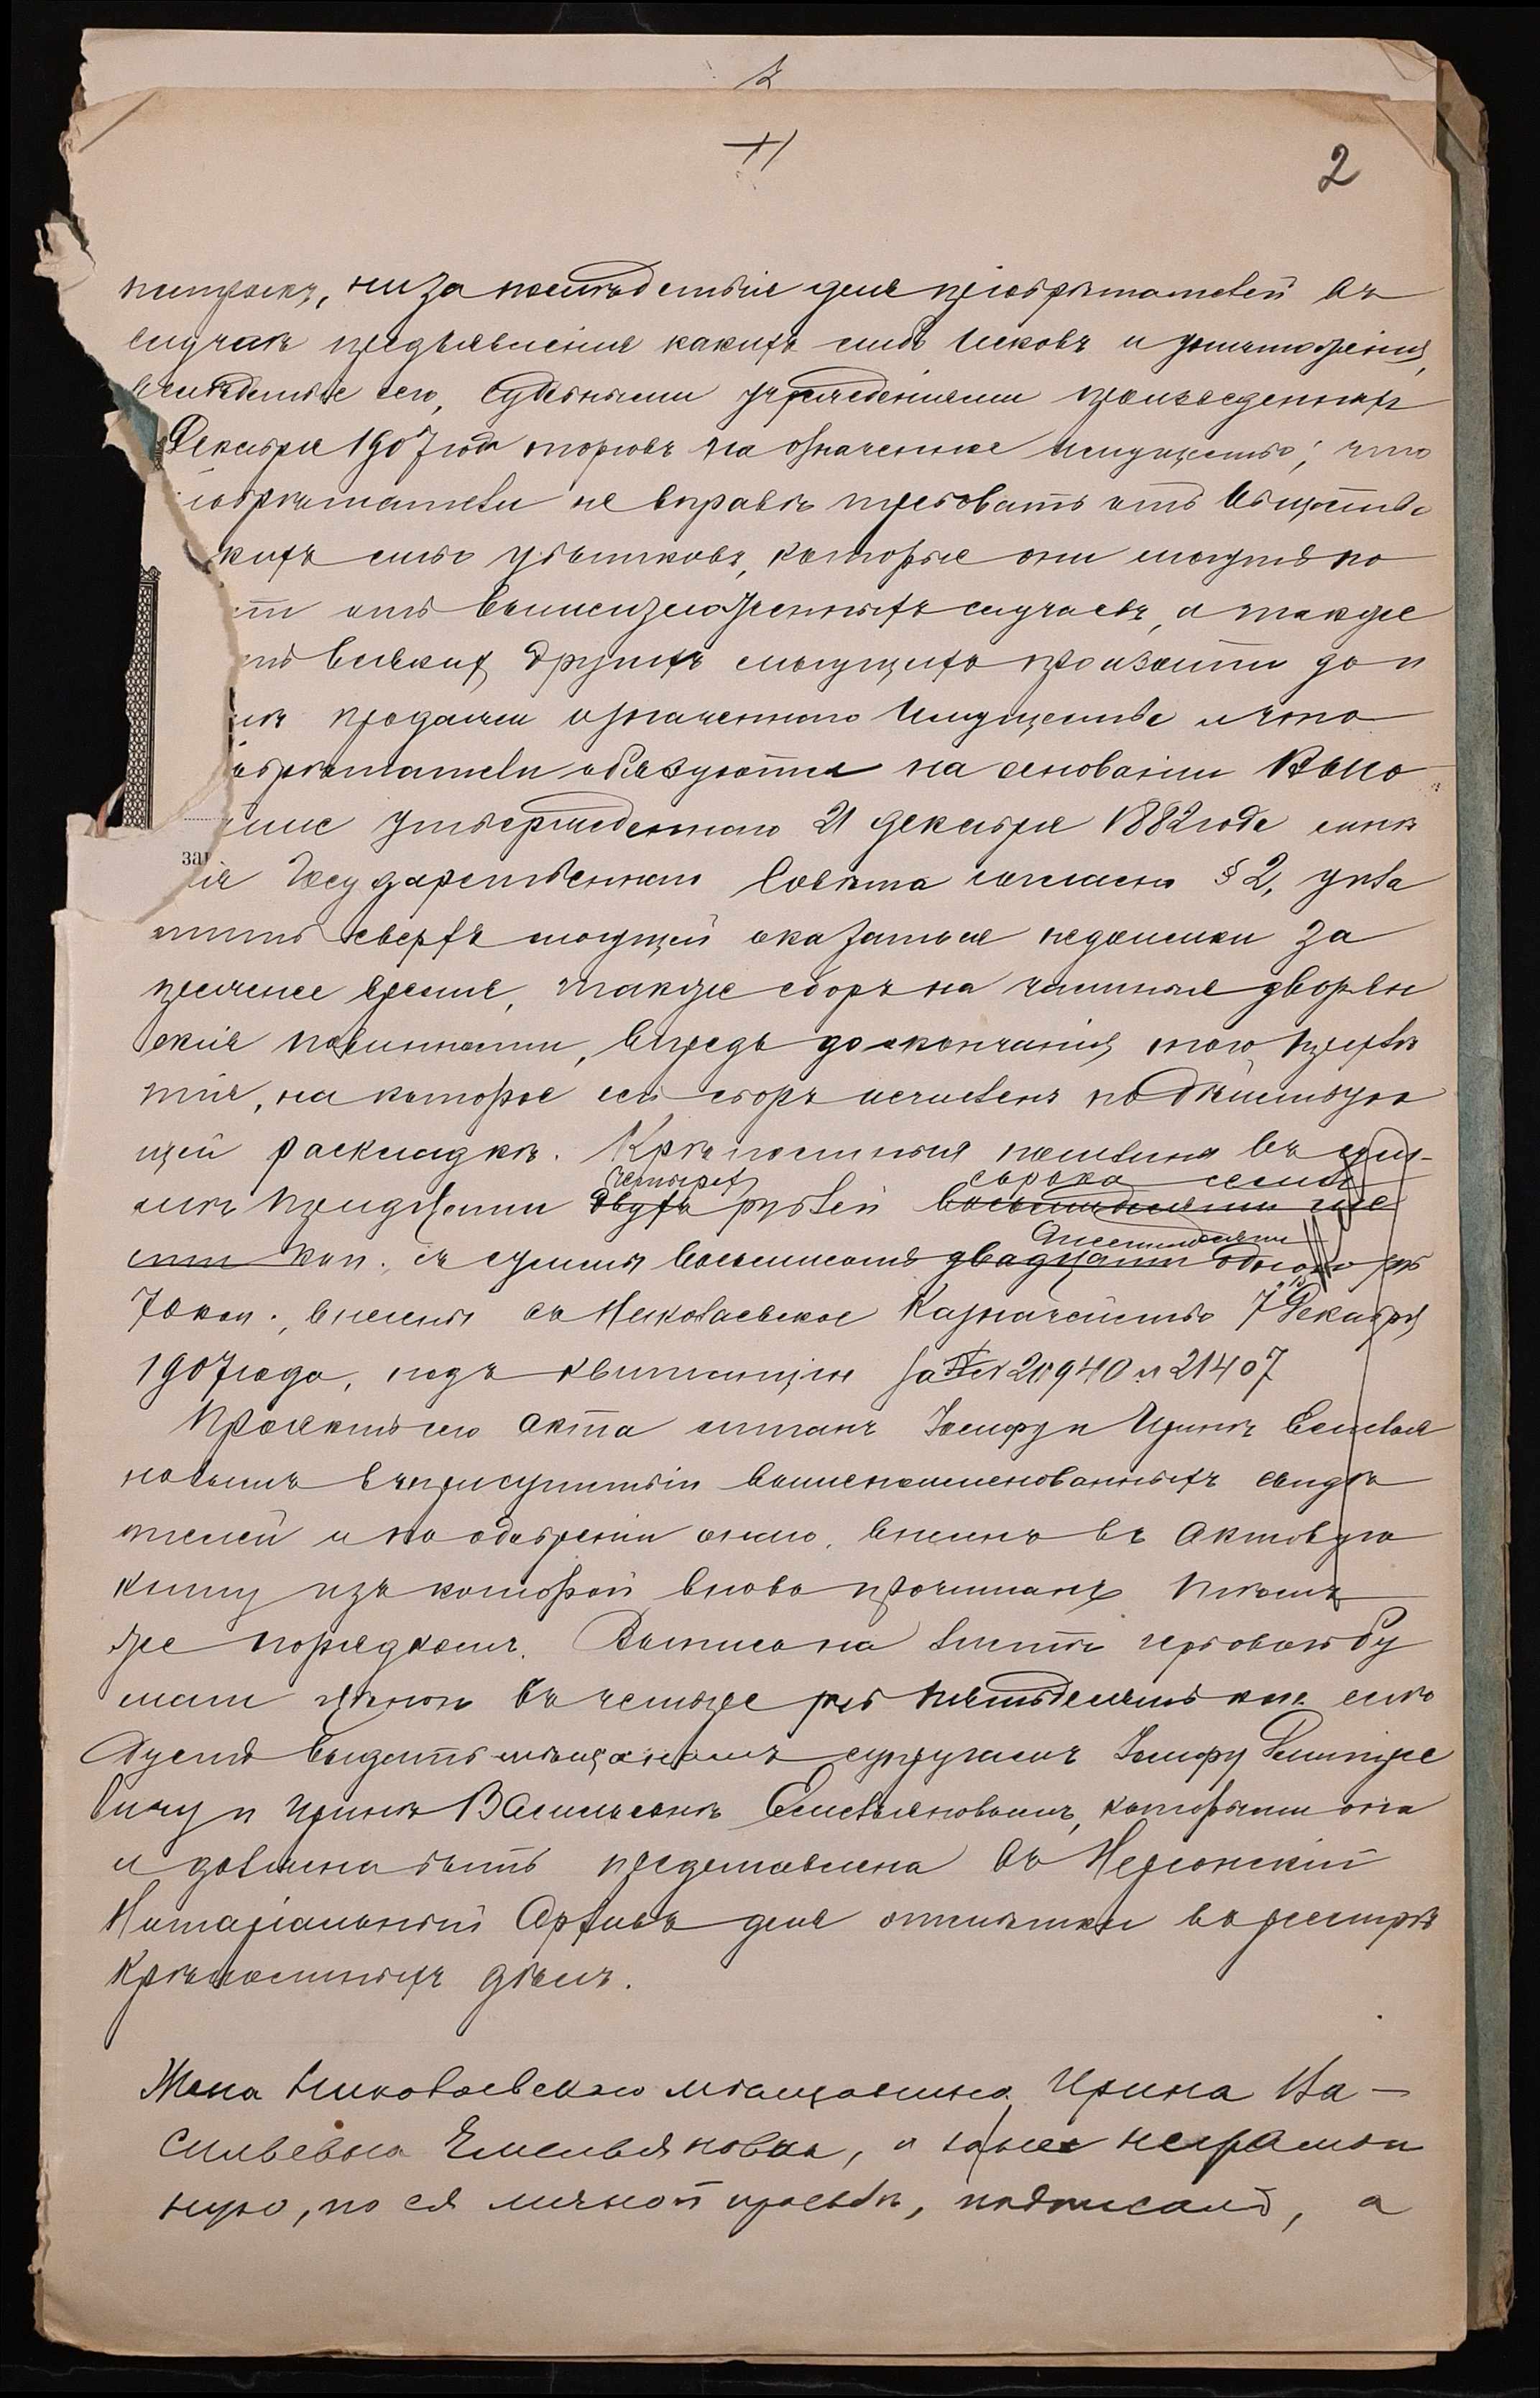 2
построекъ, ни за послѣдствія для пріобрѣтателей въ
случаѣ предъявленія какихъ либо исковъ и уничтоженія,
вслѣдствіе сего, Судебными учрежденіями произведенныхъ
Декабря 1907 года торговъ на означенное имущество; что
іобрѣтатели не вправѣ требовать отъ Общества
кихъ либо убытковъ, которые они могутъ по
ти отъ вышеизложенныхъ случаевъ, а также
отъ всякихъ другихъ могущихъ произойти до и
лѣ продажи означеннаго имущества и что
обрѣтатели обязуются на основаніи Высо
йше утвержденнаго 21 декабря 1882 года мнѣ
зап
ія Государственнаго Совѣта согласно § 2, упла
тить сверхъ могущей оказаться недоимки за
прежнее время, также сборъ на частныя дворян
скія повинности, впредь до окончанія того трехлѣ
тія, на которое сей сборъ исчисленъ по дѣйствую
щей раскладкѣ. Крѣпостныя пошлины въ сум-
четырехъ сорока семи
мѣ тридцати двухъ рублей восьмидесяти ше
шестидесяти
сти коп., съ суммы восемьсотъ двадцати одного руб
70 коп., внесены въ Николаевское Казначейство 7 Декабря
1907 года, подъ квитанціи за №№ 20940 и 21407
Проектъ сего акта читанъ Іосифу и Иринѣ Емелья
новымъ въ присутствіи вышепоименованныхъ свидѣ
телей и по одобреніи онаго, внесенъ въ Актовую
книгу изъ которой вновь прочитанъ тѣмъ
же порядкомъ. Выпись на листѣ гербовой бу
маги цѣною въ четыре руб пятьдесятъ коп. слѣ
дуетъ выдать мѣщанамъ супругамъ Іосифу Дмитріе
вичу и Иринѣ Васильевнѣ Емельяновымъ, которыми она
и должна быть представлена въ Херсонскій
Нотаріальный Архивъ для отмѣтки въ реестрѣ
крѣпостныхъ дѣлъ.
Жена Николаевскаго мѣщанина Ирина Ва-
сильевна Емельянова, а за нее неграмот
ную, по ея личной просьбѣ, подписалъ, а